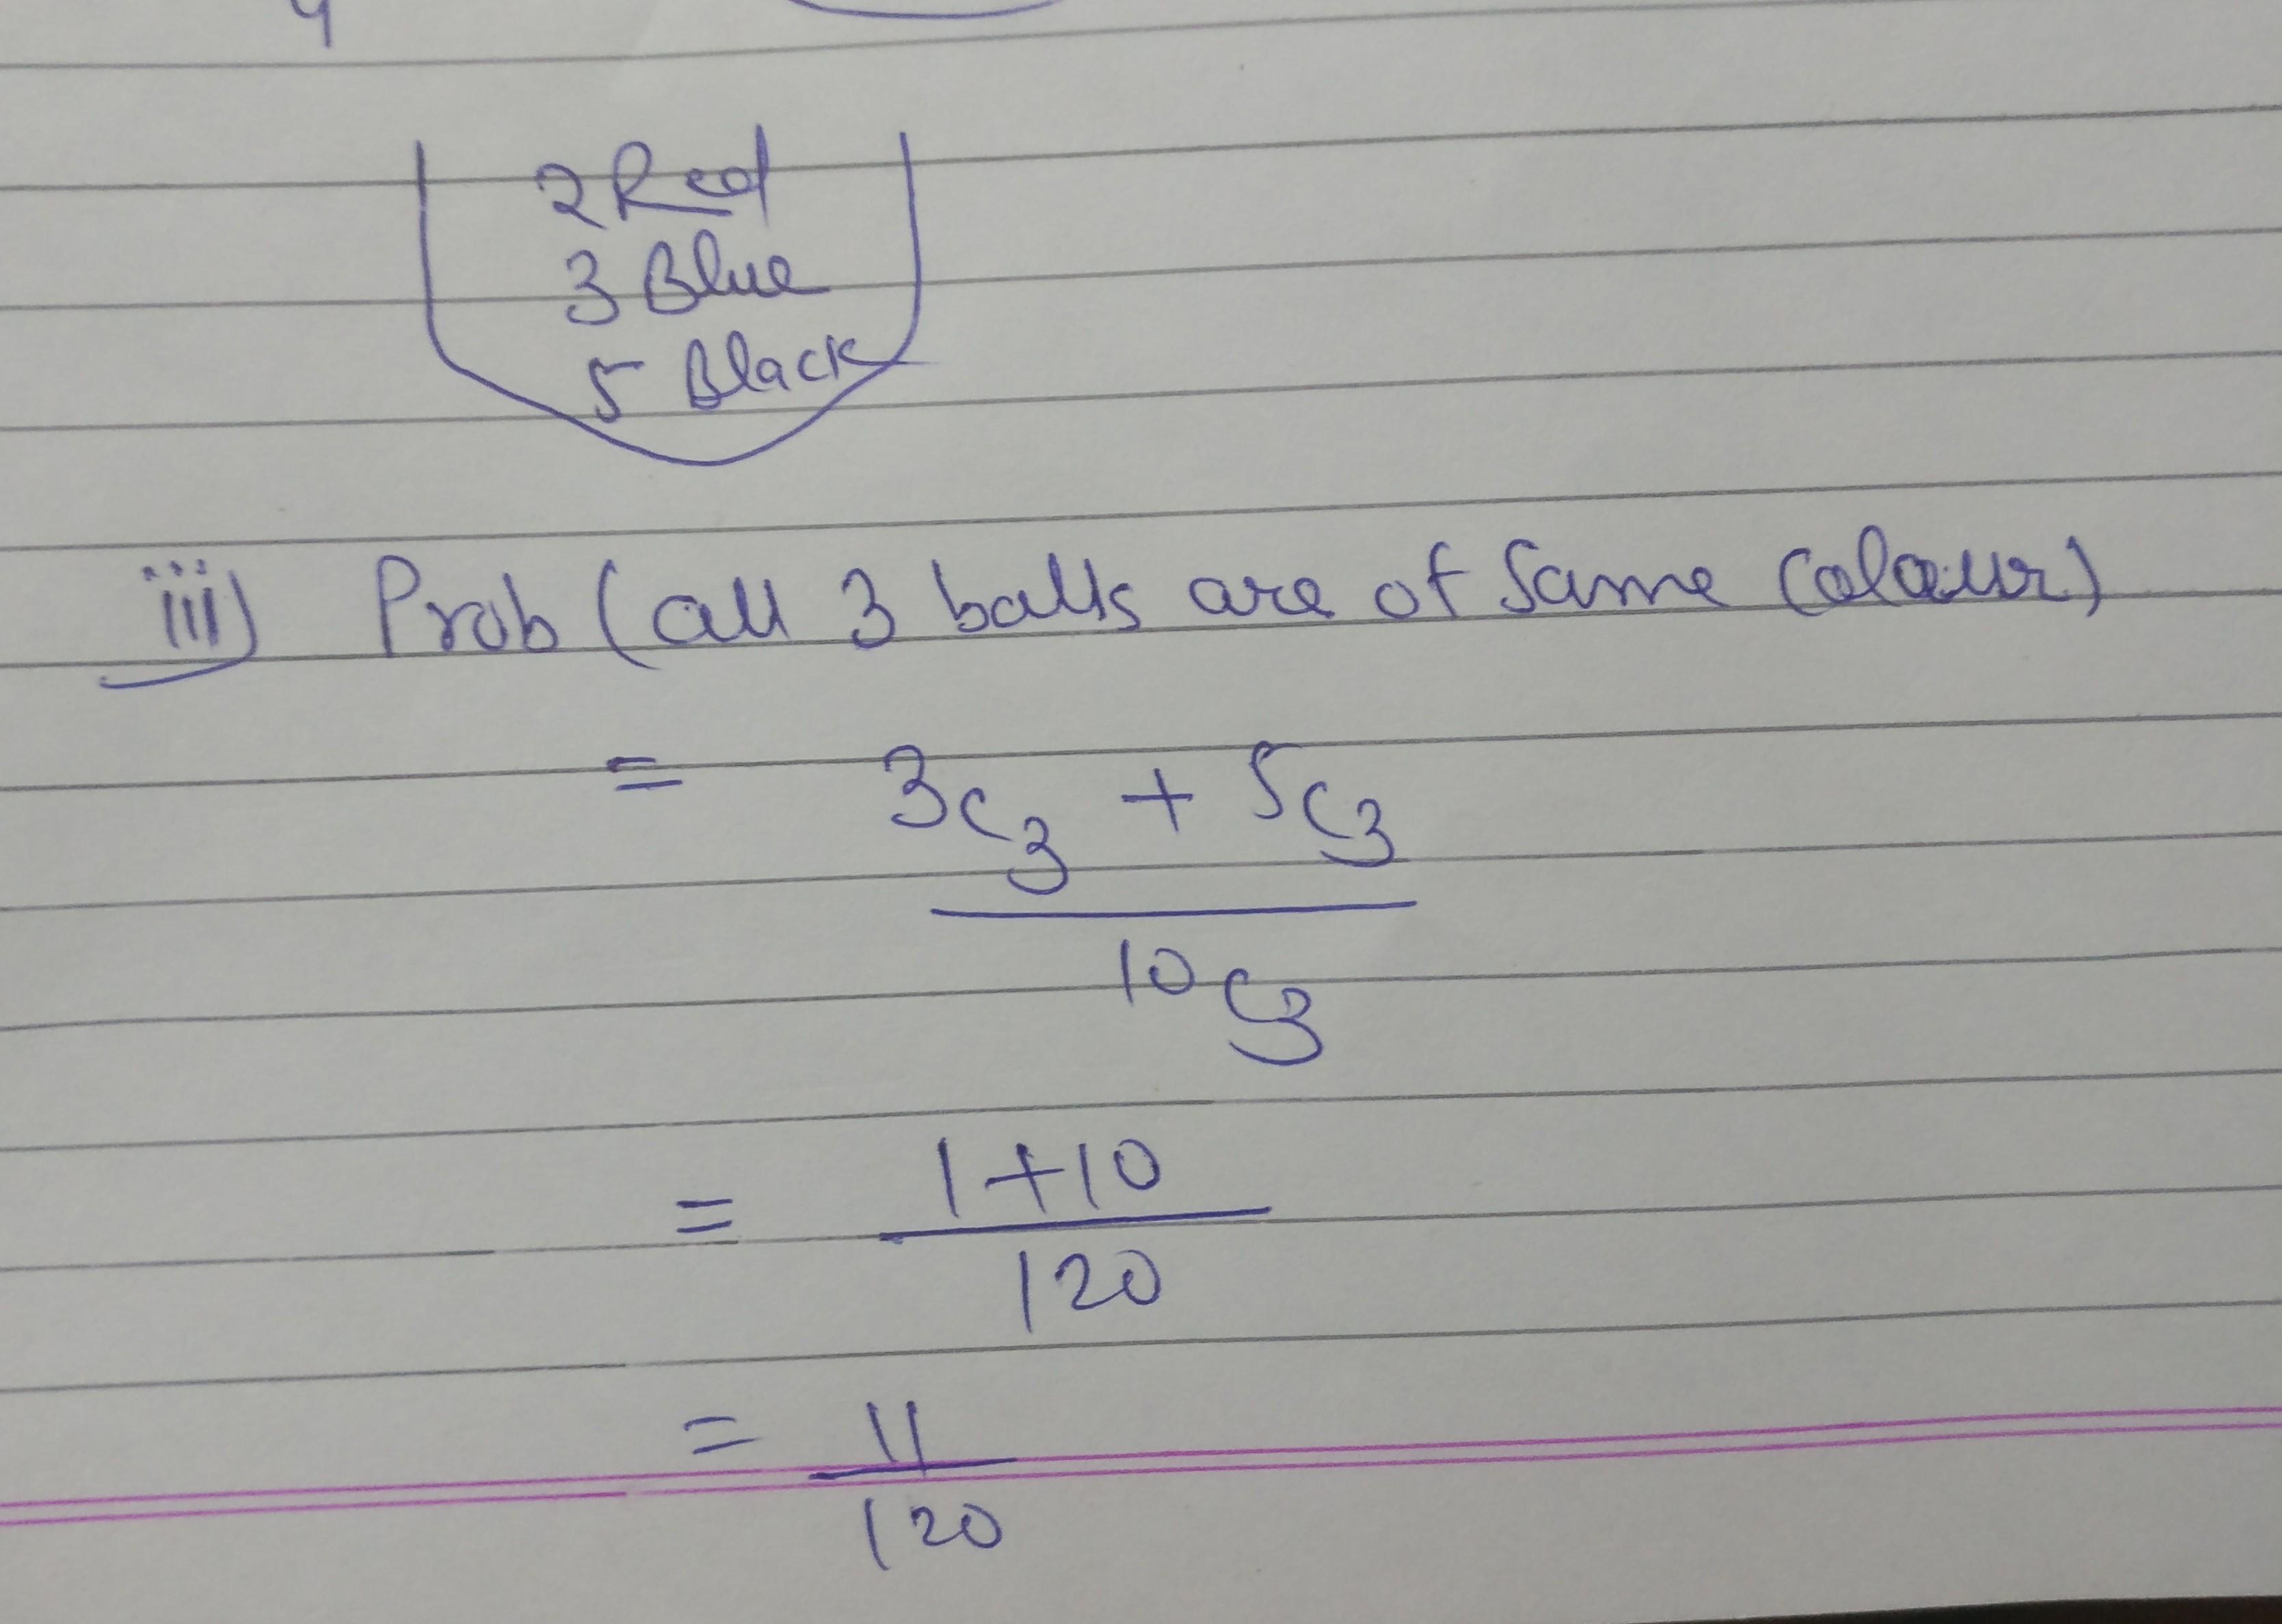 2 Red
3 Blue
5 Black
iii) Prob (all 3 balls are of same colour)
= 3C3 + 5C3
10C3
= 1+10
120
= 11
120